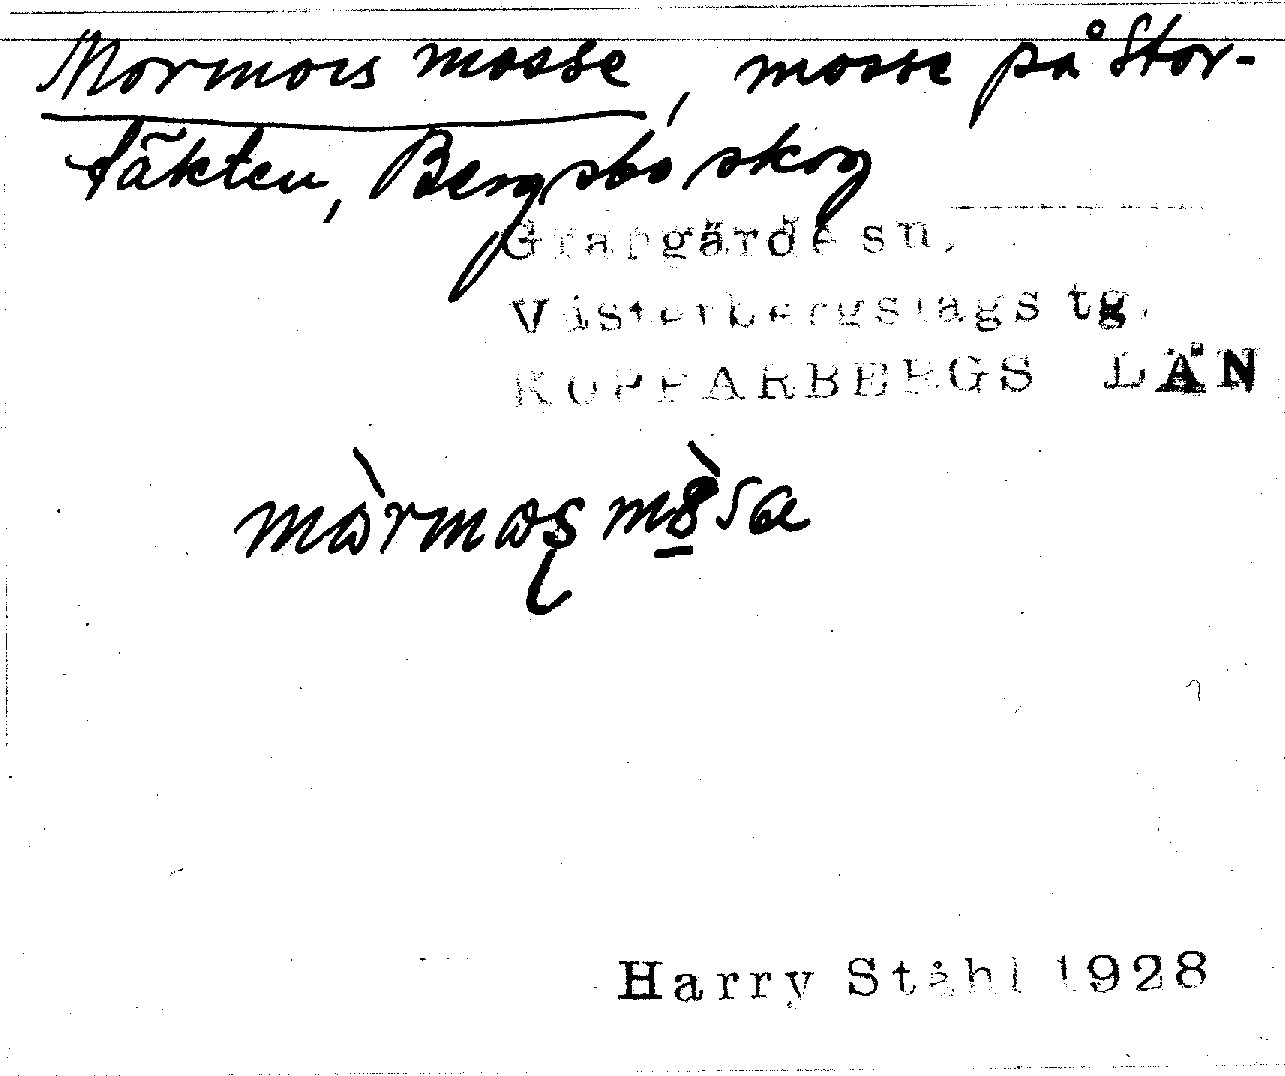 Mormors mosse, mosse på Stor-
täkten, Bergsbo skog
Grangärde sn,
Västerbergslags tg.
KOPPARBERGS LÄN
Harry Ståhl 1928